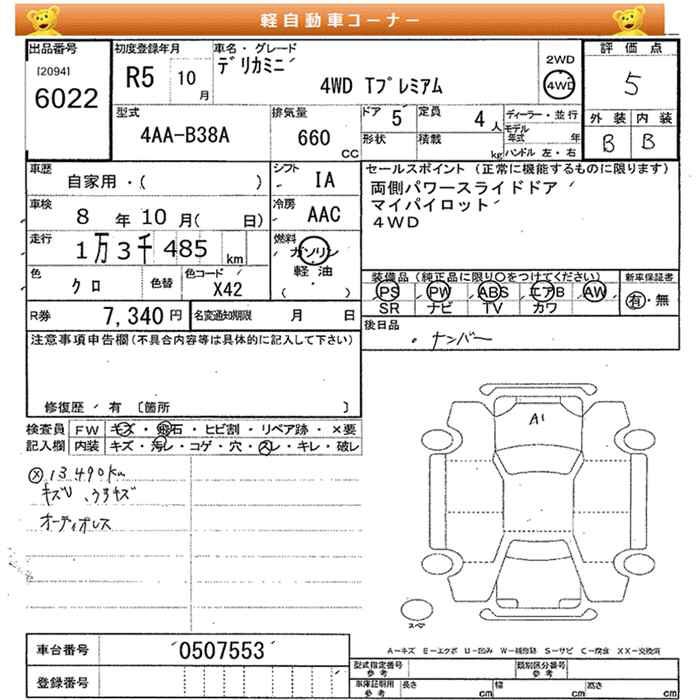 軽自動車コーナー
出品番号
[2094]
6022
初度登録年月
R5 10月
車名・グレード
デリカミニ
4WD Tプレミアム
2WD
4WD
評価点
5
外装 内装
B B
型式
4AA-B38A
排気量
660
cc
ドア 5
定員 4人
形状
積載 kg
ディーラー・並行
モデル年式 年
ハンドル 左・右
車歴
自家用・( )
シフト
IA
車検
8年10月( 日)
冷房
AAC
走行
1万3千485 km
燃料
ガソリン
軽油
( ・ )
色
クロ
色替
色コード
X42
R券 7,340円
名変通知期限 月 日
セールスポイント(正常に機能するものに限ります)
両側パワースライドドア
マイパイロット
4WD
装備品(純正品に限り〇をつけてください)
PS PW ABS エアB AW
SR ナビ TV カワ
新車保証書
有・無
後日品
・ナンバー
注意事項申告欄(不具合内容等は具体的に記入して下さい)
修復歴 / 有 〔箇所 〕
検査員記入欄
FW キズ・飛石・ヒビ割・リペア跡・×要
内装 キズ・汚レ・コゲ・穴・スレ・キレ・破レ
ⓧ 13,490km
キズU、ウラキズ
オーディオレス
A1
スペア
A-キズ E-エクボ U-凹み W-補修跡 S-サビ C-腐食 XX-交換済
車台番号 0507553
登録番号
型式指定番号 参考
類別区分番号 参考
車庫証明用 参考
長さ cm 幅 cm 高さ cm